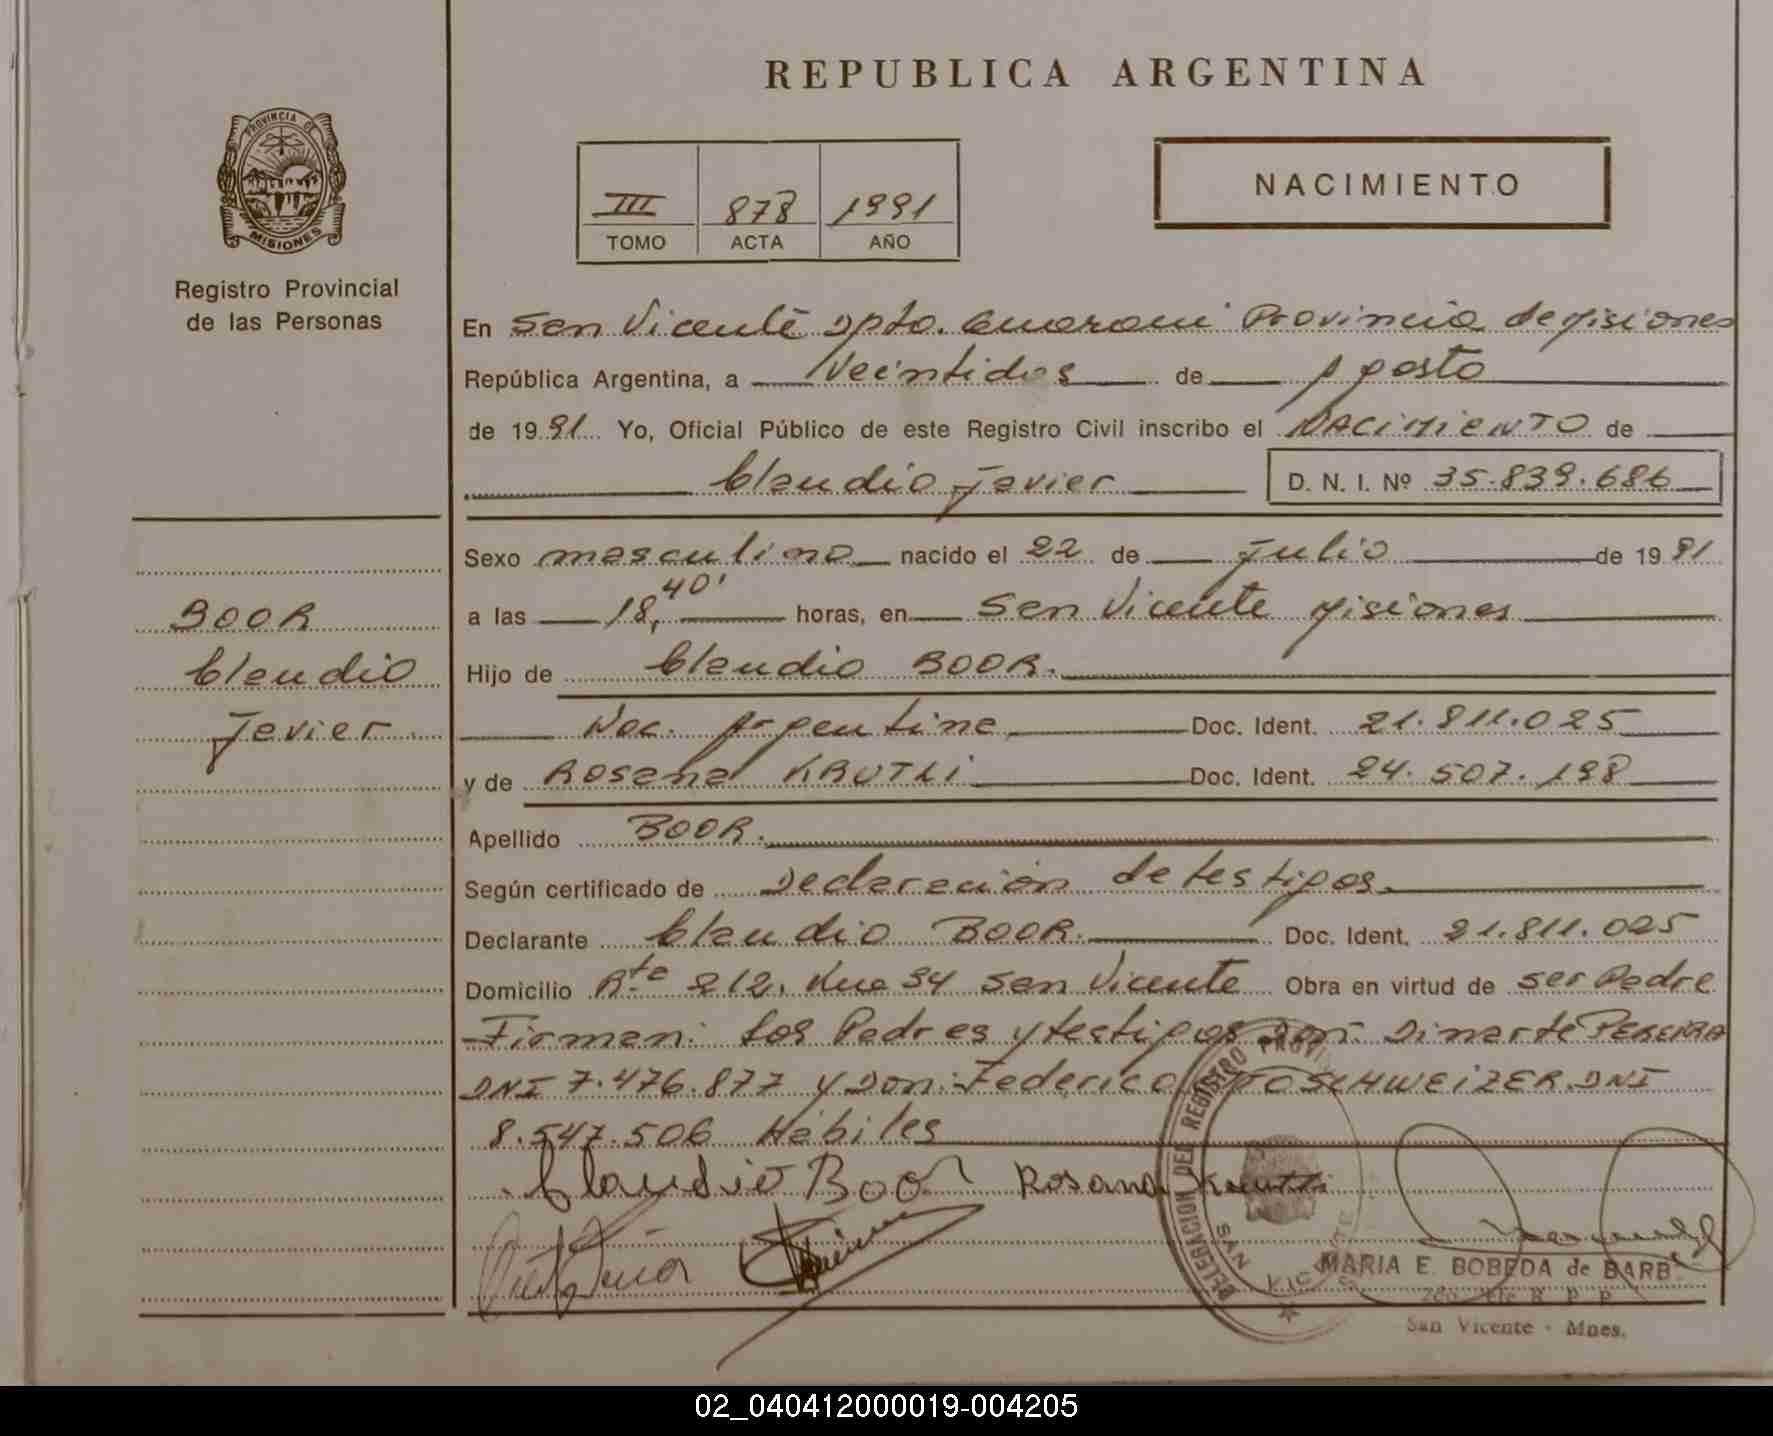 REPUBLICA ARGENTINA
PROVINCIA DE
MISIONES
Registro Provincial
de las Personas
III 878 1991
TOMO ACTA AÑO
NACIMIENTO
En San Vicente Dpto. Guarani Provincia de Misiones
República Argentina, a Veintidos de Agosto
de 1991 Yo, Oficial Público de este Registro Civil inscribo el NACIMIENTO de
Claudio Javier D. N. I. Nº 35.839.686
Sexo masculino nacido el 22 de Julio de 1991
a las 18,40' horas, en San Vicente Misiones
Hijo de Claudio BOOR.
Nac. Argentina Doc. Ident. 21.811.025
y de Rosana KRUTLI Doc. Ident. 24.507.198
Apellido BOOR.
Según certificado de Declaración de testigos
Declarante Claudio BOOR. Doc. Ident. 21.811.025
Domicilio Rte 212, Km 34 San Vicente Obra en virtud de ser Padre
Firman: Los Padres y testigos Don: Dinarte PEREIRA
DNI 7.476.877 y Don: Federico SCHWEIZER. DNI
8.547.506 Hábiles
BOOR
Claudio
Javier
Claudio Boor Rosana Krutli
DELEGACION DEL REGISTRO PROVI
MARIA E. BOBEDA de BARB
San Vicente - Mnes.
02_040412000019-004205